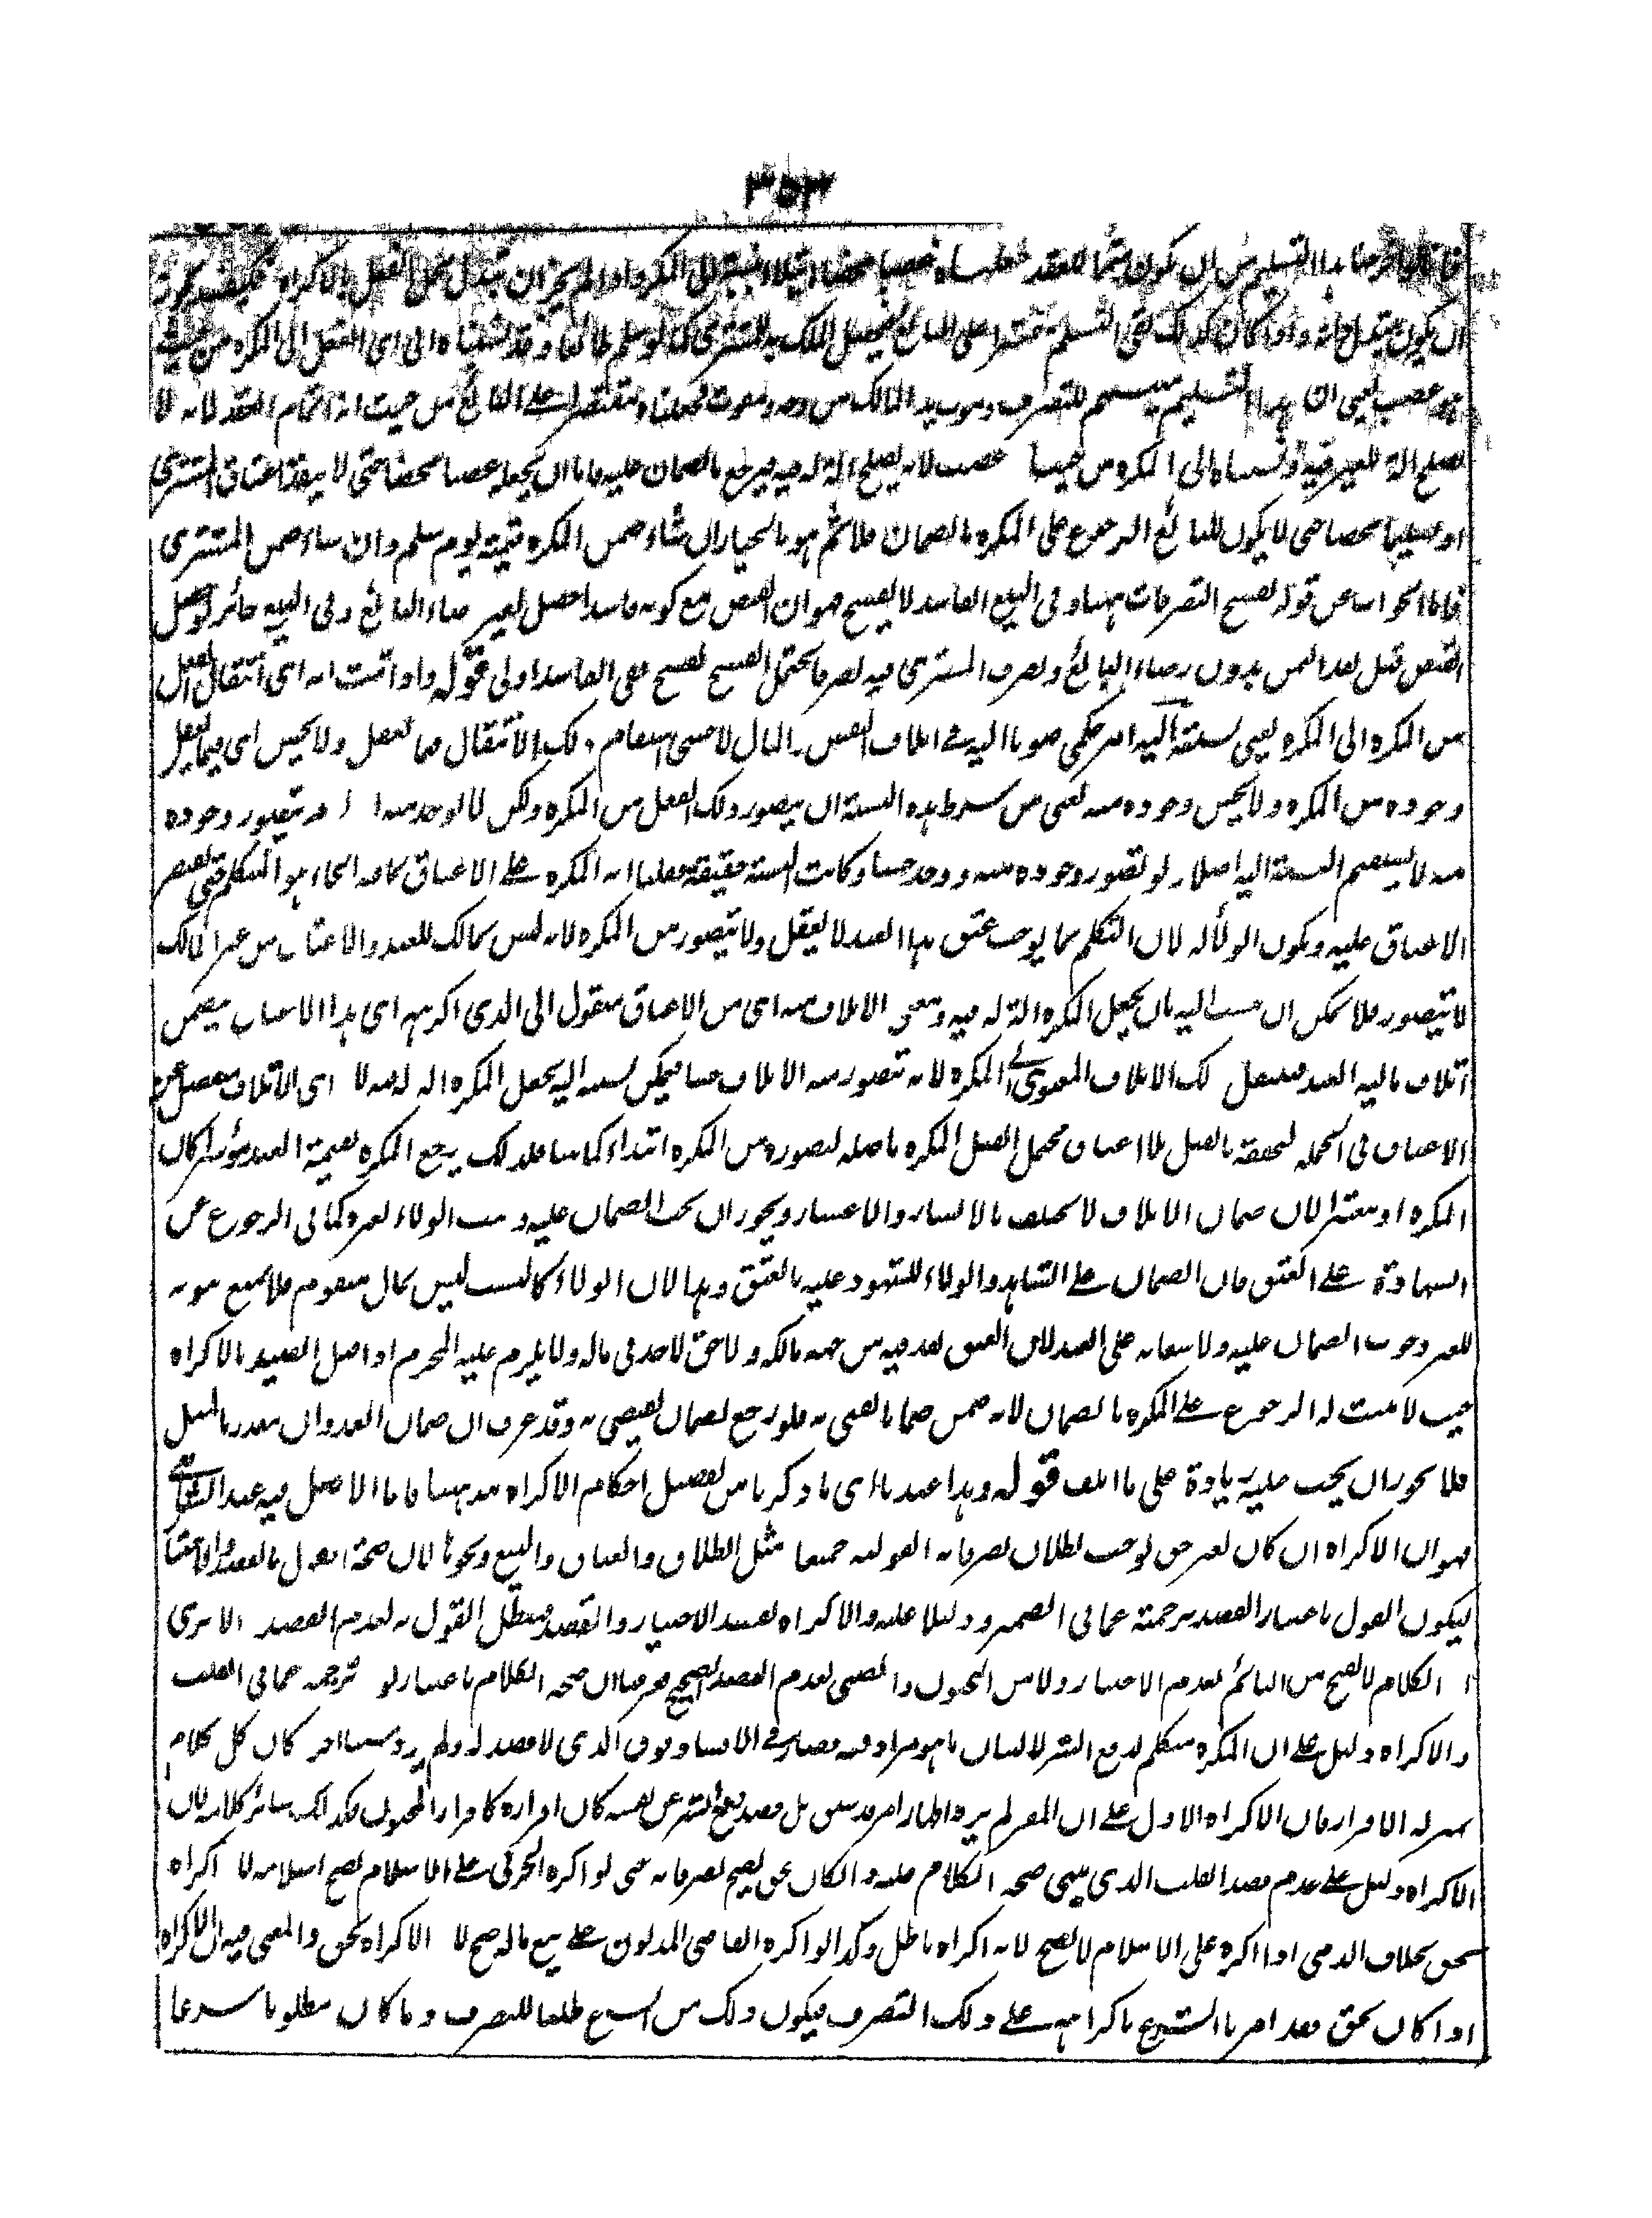 ٣٥٣
هذا التسليم من ان يكون متمما للعقد فجعلناه غصبا محضا ابتداء بنسبته الى المكره واذا لم يجز ان يتبدل محل الفعل بالاكراه فكيف يجوز
ان يكون يتبدل ذاته واذا كان كذلك بقى التسليم مقتصرا على البائع فيحصل الملك به للمشترى كما لو سلم طائعا وقد نسبناه الى اى الفعل الى المكره من حيث
هو غصب يعنى ان هذا التسليم متمم للتصرف وتفويت يد المالك من وجه فجعلناه مقتصرا على البائع من حيث انه اتمام العقد لانه لا
يصلح آلة للغير فيه ونسبناه الى المكره من حيث غصب لانه يصلح آلة له فيه فيرجع بالضمان عليه فاما ان يجعله غصبا محضا حتى لا ينفذ اعتاق المشترى
او محضا حتى لا يكون للبائع الرجوع على المكره بالضمان فلا ثم هو بالخيار ان شاء ضمن المكره قيمته يوم سلم وان شاء ضمن المشترى
فاما الجواب عن قوله يفسخ التصرفات ههنا وفى البيع الفاسد لا يفسخ فهو ان القبض مع كونه فاسدا حصل لغير رضاء البائع وفى البيع جائز لو حصل
القبض قبل نقد الثمن بدون رضاء البائع وتصرف المشترى فيه تصرفا يحتمل الفسخ يفسخ ففى الفاسد اولى قوله واذا ثبت انه اى انتقال الفعل
من المكره الى المكره يعنى نسبته اليه امر حكمى صرنا اليه فى اتلاف النفس والمال لا حسى استقام ذلك الانتقال فيما يعقل ولا يحس اى فيما يعقل
وجوده من المكره ولا يحس وجوده منه يعنى من شرط هذه النسبة ان يتصور ذلك الفعل من المكره ولكن لا يوجد منه اذ لو لم يتصور وجوده
منه لا يستقيم النسبة اليه اصلا ولو تصور وجوده منه ووجد حسا وكانت النسبة حقيقة فقلنا ان المكره على الاعتاق بما فيه الجاء هو المتكلم حتى يقتصر
الاعتاق عليه ويكون الولاء له لان التكلم بما يوجب عتق هذا العبد لا يعقل ولا يتصور من المكره لانه ليس بمالك للعبد والاعتاق من غير المالك
لا يتصور فلا يمكن ان ينسب اليه بان يجعل المكره آلة له فيه ومعنى الاتلاف منه اى من الاعتاق منقول الى الذى اكرهه اى هذا الاعتاق يتضمن
اتلاف مالية العبد فينتقل ذلك الاتلاف المعنوى الى المكره لانه يتصور منه الاتلاف حسا فيمكن نسبته اليه بجعل المكره آلة له لانه اى الاتلاف منفصل عن
الاعتاق فى الجملة لتحققه بالقتل بلا اعتاق محتمل للنقل الى المكره باصله لتصوره من المكره ابتداء كما بينا فلذلك يرجع المكره بقيمة العبد موسرا كان
المكره او معسرا لان ضمان الاتلاف لا يختلف بالايسار والاعسار ويجوز ان يجب الضمان عليه ويثبت الولاء لغيره كما فى الرجوع عن
الشهادة على العتق فان الضمان على الشاهد والولاء للمشهود عليه بالعتق وهذا لان الولاء كالنسب ليس بمال متقوم فلا يمنع ثبوته
للغير وجوب الضمان عليه ولا سعاية على العبد لان العتق نفذ فيه من جهة مالكه ولا حق لاحد فى ماله ولا يلزم عليه المحرم اذا قتل الصيد بالاكراه
حيث لا يثبت له الرجوع على المكره بالضمان لانه ضمن ضمانا يفتى به فلو رجع لرجع بضمان يقضى به وقد عرف ان ضمان العدوان مقدر بالمثل
فلا يجوز ان يجب عليه زيادة على ما اتلف قوله وهذا عندنا اى ما ذكرنا من تفصيل احكام الاكراه مذهبنا فاما الاصل فيه عند الشافعى
فهو ان الاكراه ان كان بغير حق يوجب بطلان تصرفاته القولية جميعا مثل الطلاق والعتاق والبيع ونحوها لان صحة القول بالقصد والاختيار
ليكون القول باعتبار القصد ترجمة عما فى الضمير ودليلا عليه والاكراه يفسد الاختيار والقصد فيبطل القول به لعدم القصد الا ترى
ان الكلام لا يصح من النائم لعدم الاختيار ولا من المجنون والصبى لعدم القصد الصحيح فعرفنا ان صحة الكلام باعتبار كونه ترجمة عما فى القلب
والاكراه دليل على ان المكره متكلم لدفع الشر لا لبيان ما هو مراد قلبه فصار فى الافساد فوق الذى لا قصد له ولم يرد شيئا آخر كان كل كلام
بمنزلة الاقرار فان الاكراه لما دل على ان المقر لم يرد اظهار امر قد سبق بل قصد دفع الشر عن نفسه كان اقراره كاقرار المجنون فكذلك سائر كلامه لان
الاكراه دليل على عدم قصد القلب الذى يبتنى صحة الكلام عليه وان كان بحق يصح تصرفاته حتى لو اكره الحربى على الاسلام يصح اسلامه لانه اكراه
بحق بخلاف الذمى اذا اكره على الاسلام لا يصح لانه اكراه باطل وكذا لو اكره القاضى المديون على بيع ماله صح لان الاكراه بحق والمعنى فيه ان الاكراه
اذا كان بحق فقد امرنا الشرع باكراهه على ذلك التصرف فيكون ذلك من الشرع طلبا للتصرف وما كان مطلوبا شرعا